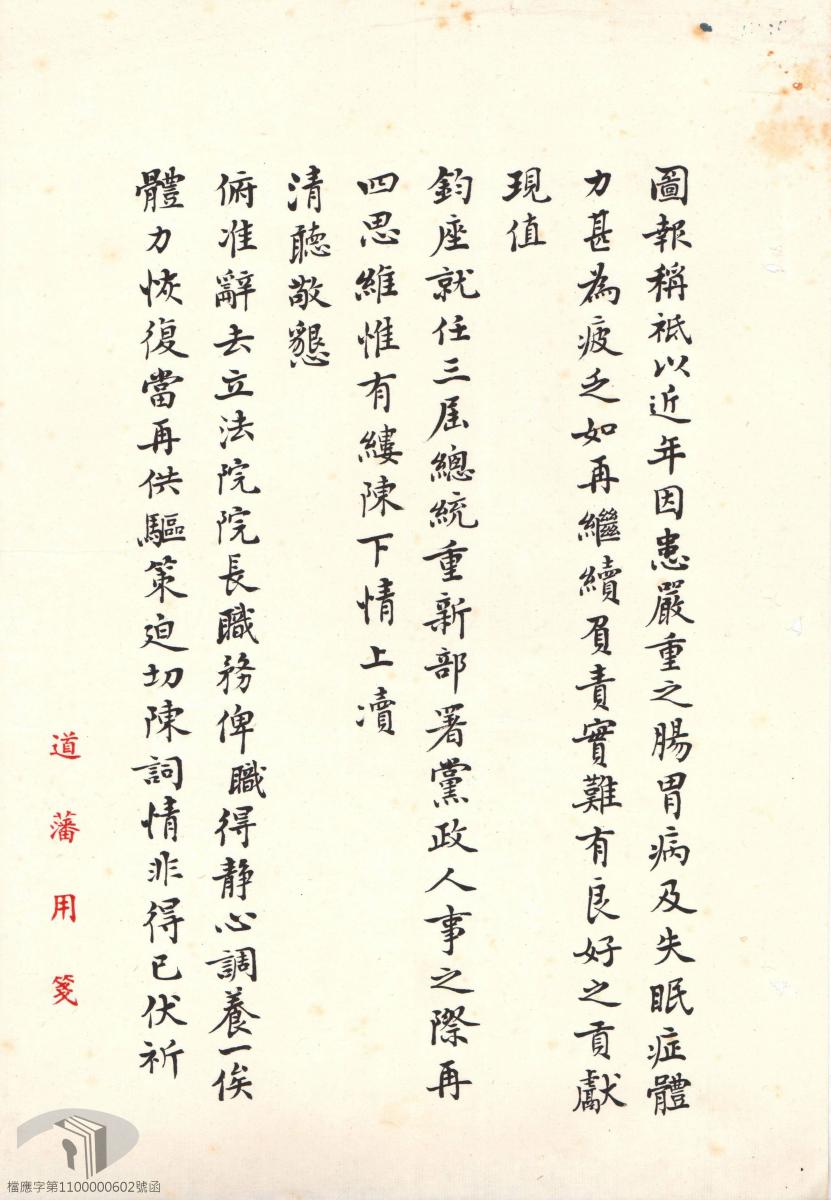 圖報稱祗以近年因患嚴重之腸胃病及失眠症體
力甚為疲乏如再繼續負責實難有良好之貢獻
現值
鈞座就任三屆總統重新部署黨政人事之際再
四思維惟有縷陳下情上瀆
清聽敬懇
俯准辭去立法院院長職務俾職得靜心調養一俟
體力恢復當再供驅策迫切陳詞情非得已伏祈
道藩用箋
檔應字第1100000602號函